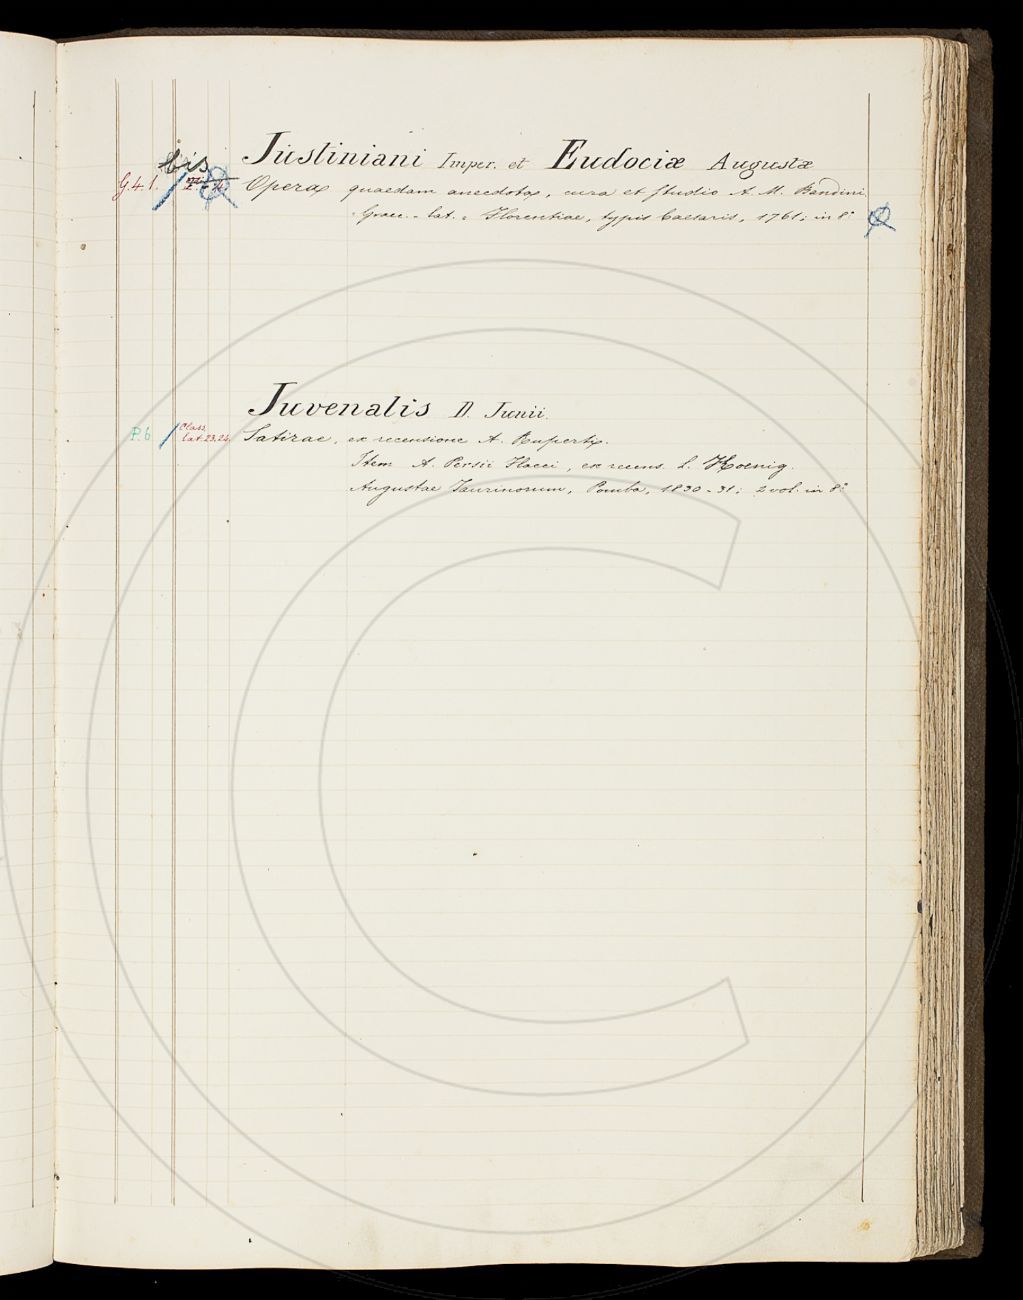 Justiniani Imper. et Eudociæ Augustæ
bis
G. 4. 1. Opera quaedam anecdota, cura et studio A. M. Bandini
Graec. - lat. - Florentiae, typis Caesaris, 1761; in 8°
Juvenalis D. Junii.
P. 6 Class. lat. 23.24 Satirae, ex recensione A. Ruperti.
Item A. Persii Flacci, ex recens. L. Koenig.
Augustae Taurinorum, Pomba, 1830-31; 2 vol. in 8°